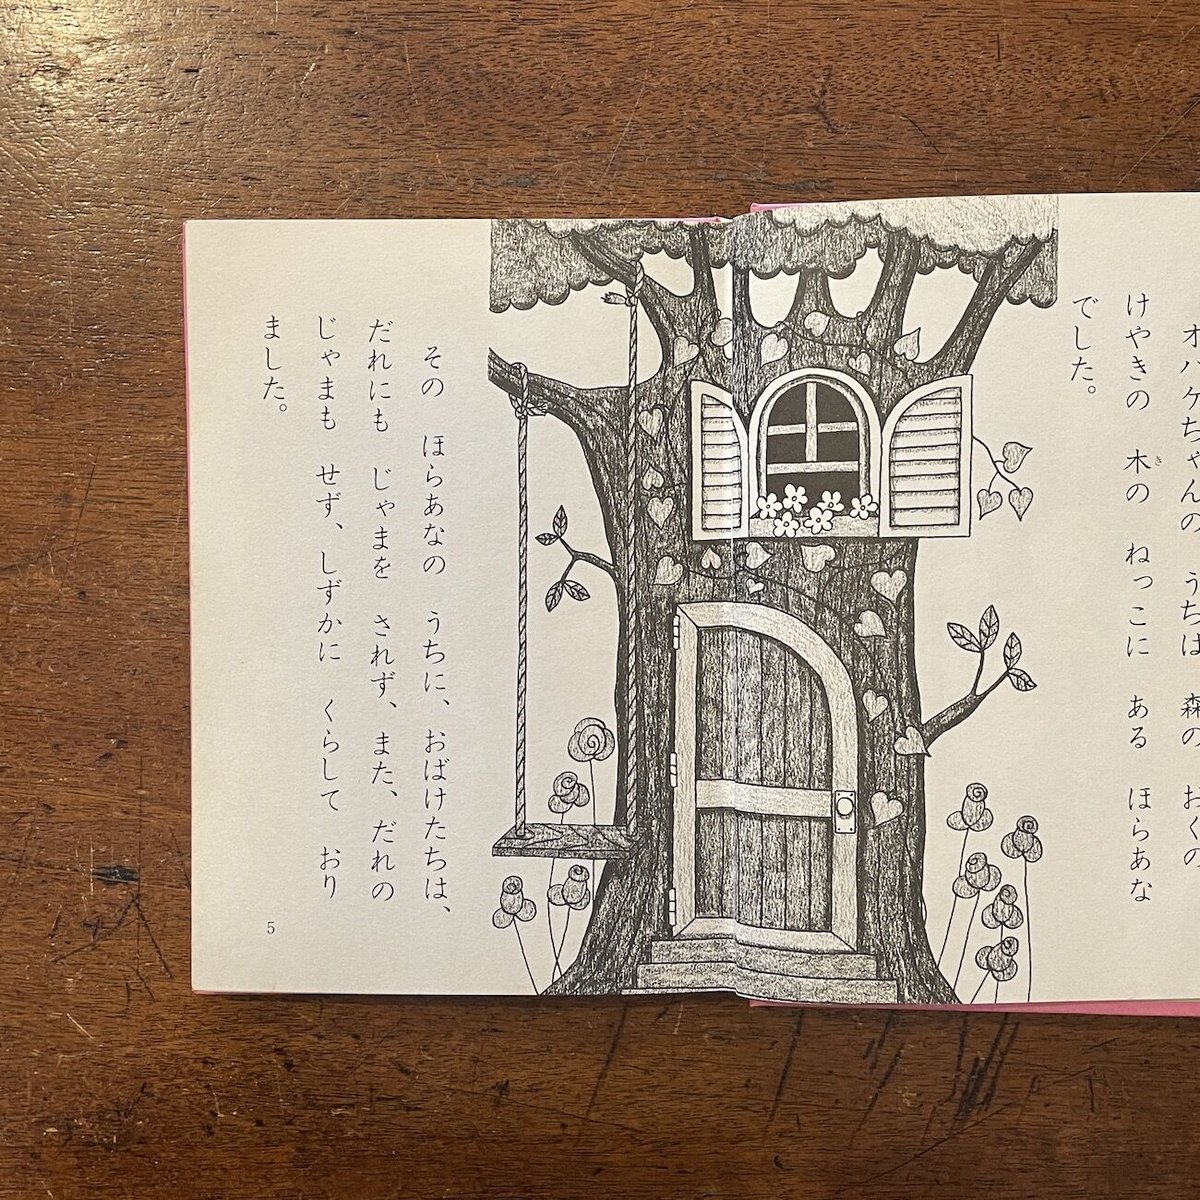 オバケちゃんの　うちは　森の　おくの
けやきの　木の　ねっこに　ある　ほらあな
でした。
その　ほらあなの　うちに、おばけたちは、
だれにも　じゃまを　されず、また、だれの
じゃまも　せず、しずかに　くらして　おり
ました。
き
5